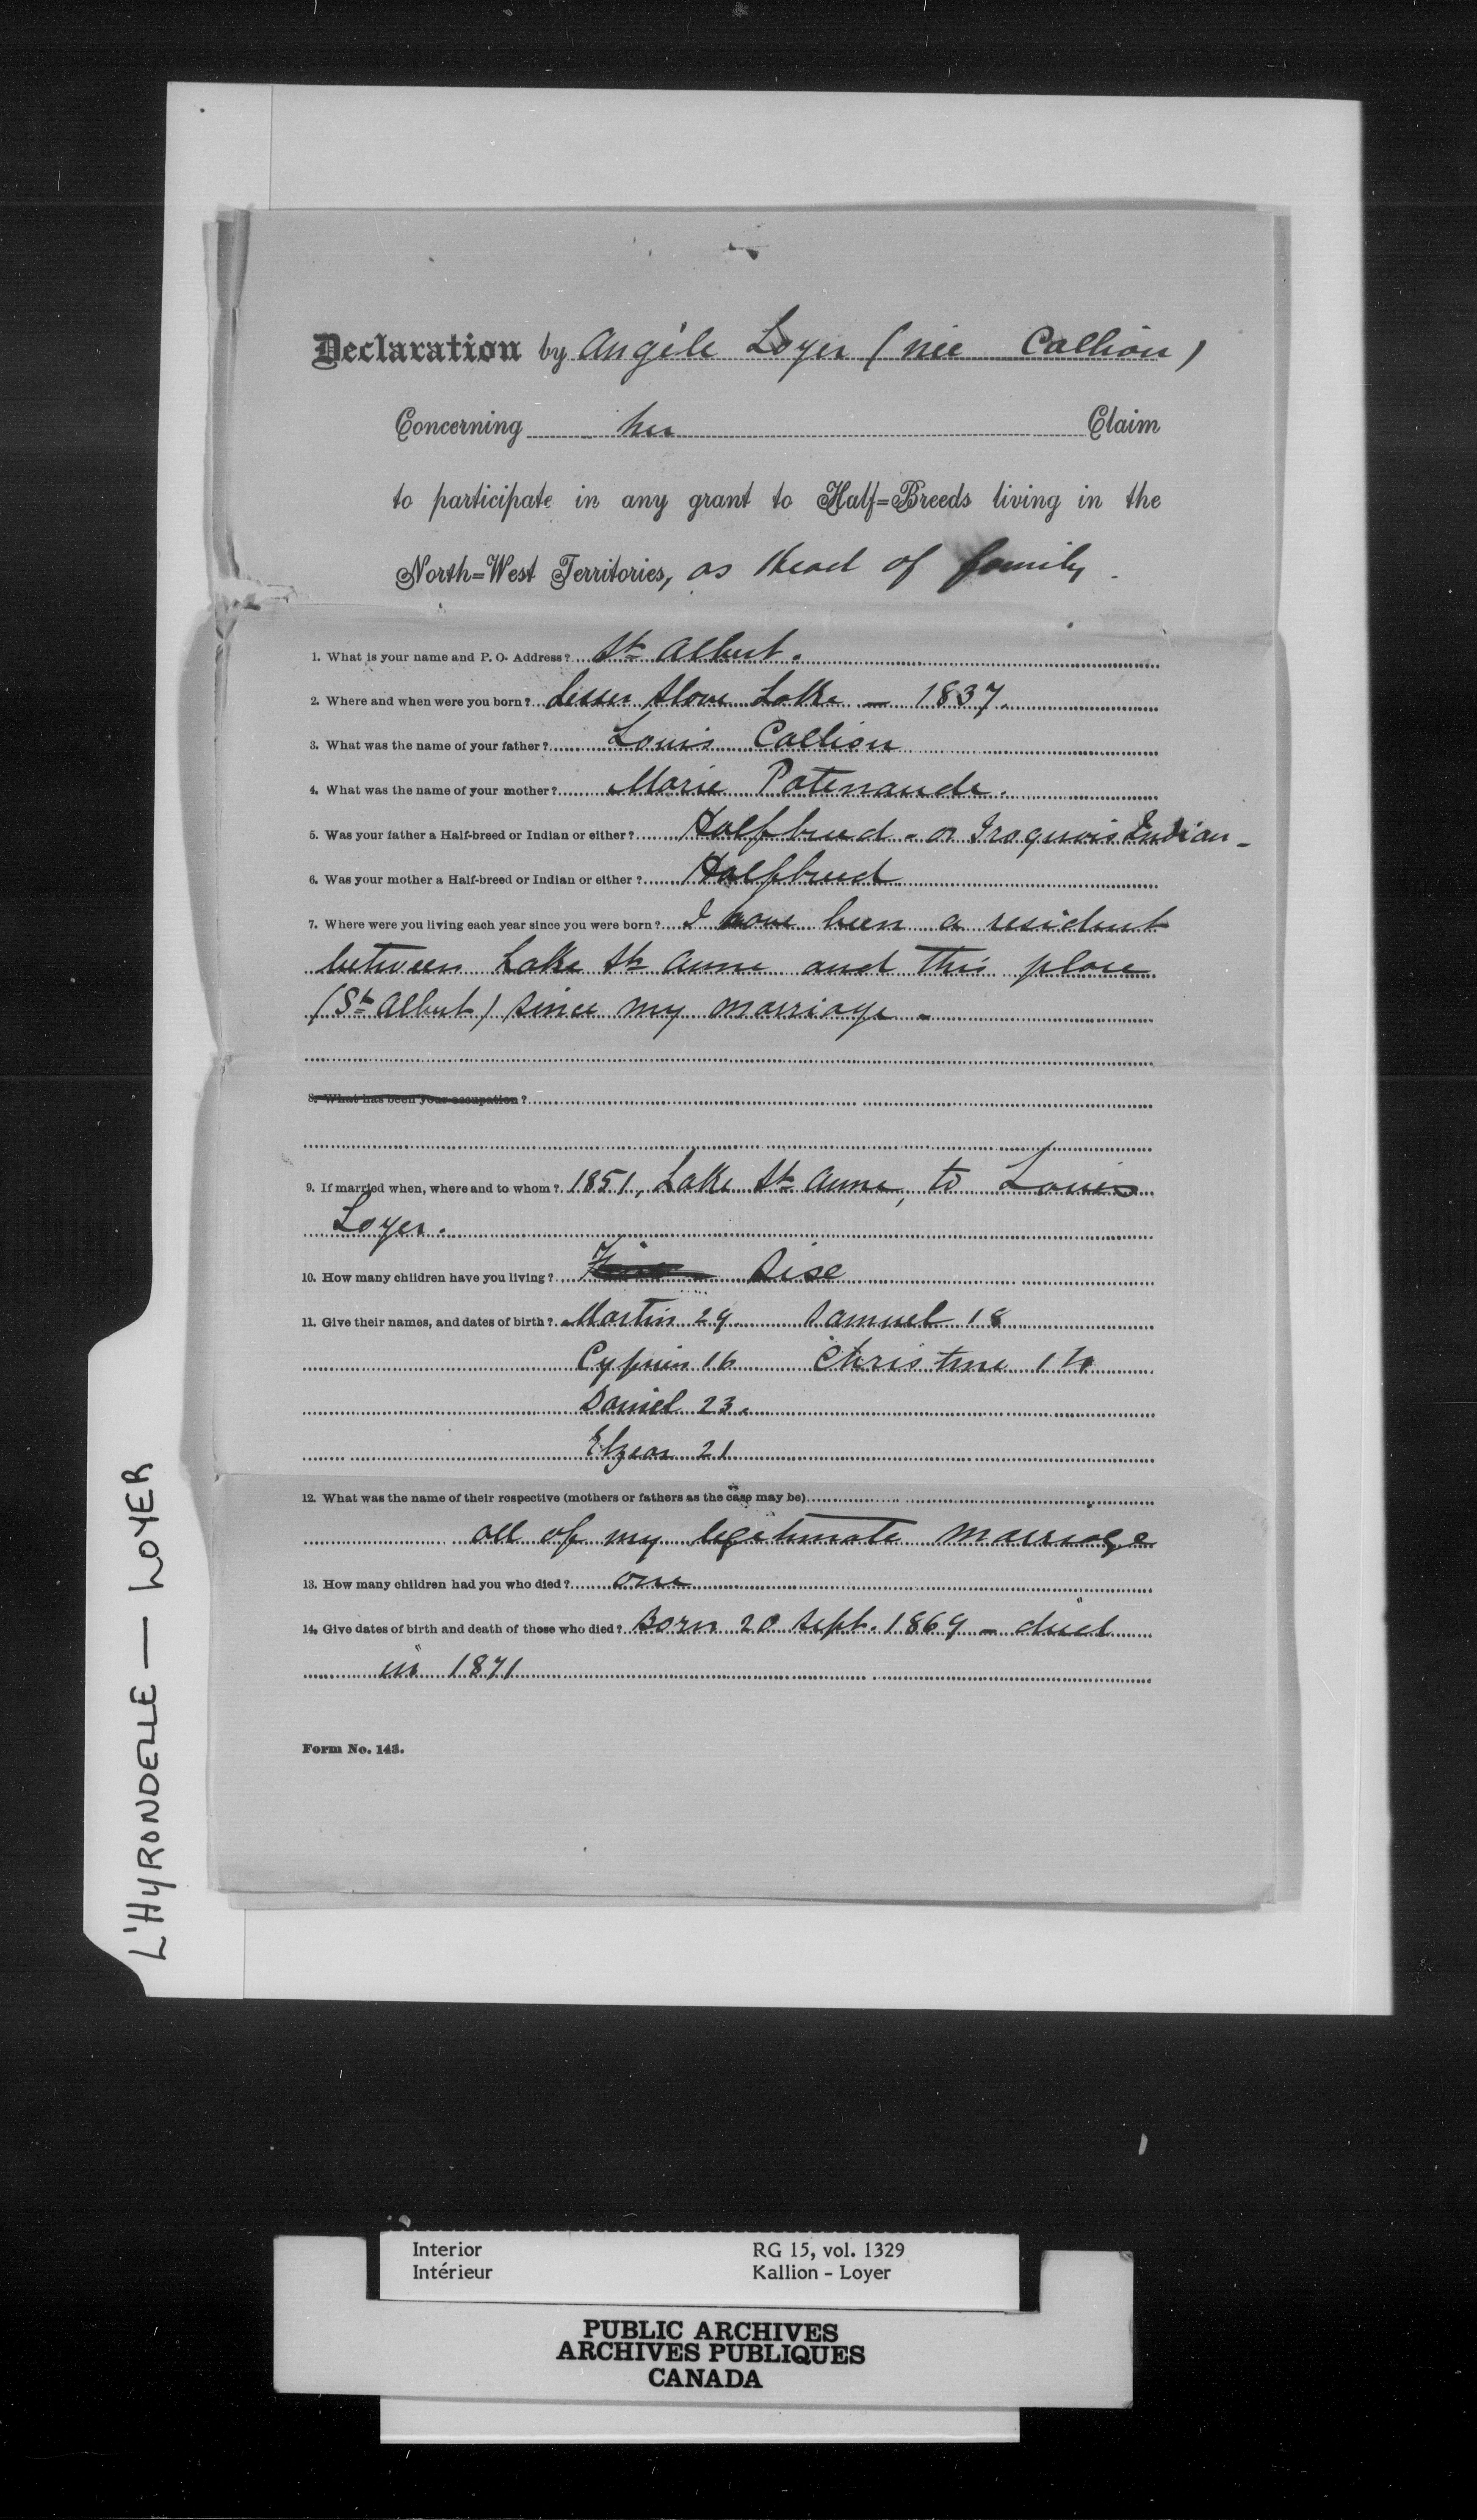 Declaration by Angèle Loyer (née Callion)
Concerning her Claim
to participate in any grant to Half=Breeds living in the
North=West Territories, as Head of family.
1. What is your name and P. O. Address? St Albert.
2. Where and when were you born? Lesser Slave Lake – 1837.
3. What was the name of your father? Louis Callion
4. What was the name of your mother? Marie Patenaude.
5. Was your father a Half-breed or Indian or either? Halfbreed - or Iroquois Indian -
6. Was your mother a Half-breed or Indian or either? Halfbreed
7. Where were you living each year since you were born? I have been a resident
between Lake St Anne and this place
(St Albert) since my marriage.
8. What has been your occupation?
9. If married when, where and to whom? 1851, Lake St Anne, to Louis
Loyer.
10. How many children have you living? Five Sise
11. Give their names, and dates of birth? Martin 29 Samuel 18
Cyprien 16 Christine
Daniel 23.
Elzear 21
12. What was the name of their respective (mothers or fathers as the case may be)
all of my legitimate marriage
13. How many children had you who died? one
14. Give dates of birth and death of those who died? Born 20 Sept. 1869 – died
in 1871
Form No. 143.
L'HYRONDELLE — LOYER
Interior RG 15, vol. 1329
Intérieur Kallion - Loyer
PUBLIC ARCHIVES
ARCHIVES PUBLIQUES
CANADA